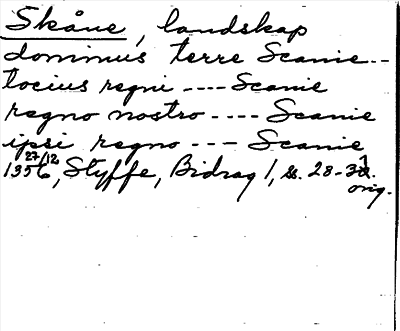 Skåne, landskap
dominus terre Scanie--
tocius regni ---- Scanie
regno nostro ---- Scanie
ipsi regno --- Scanie
27/12
1356, Styffe, Bidrag 1, ss. 28-31.
orig.